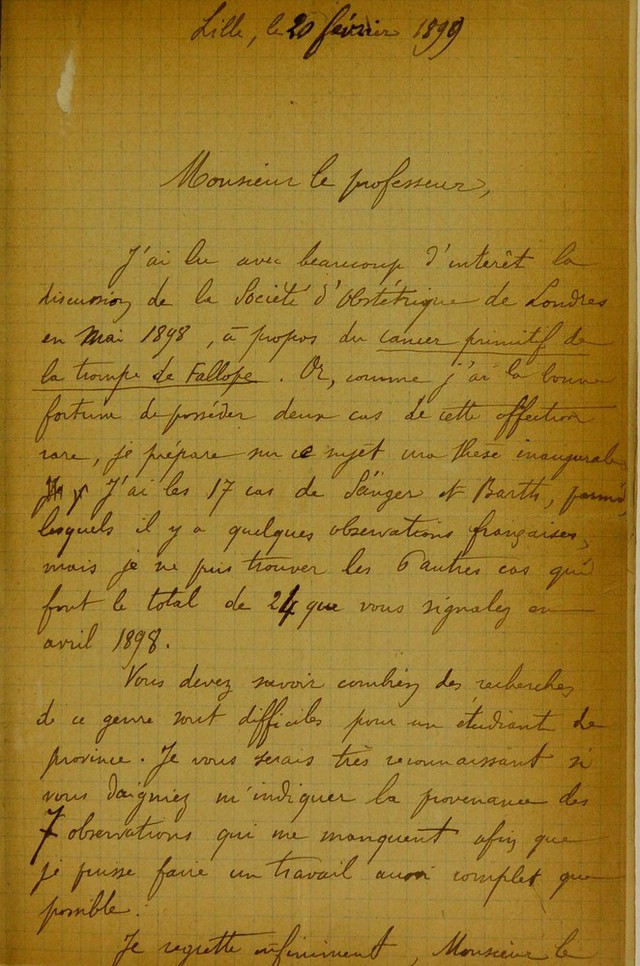 Lille, le 20 février 1899
Monsieur le professeur,
J'ai lu avec beaucoup d'intérêt la
discussion de la Société d'Obstétrique de Londres
en Mai 1898, à propos du cancer primitif de
la trompe de Fallope. Or, comme j'ai la bonne
fortune de posséder deux cas de cette affection
rare, je prépare sur ce sujet ma thèse inaugurale.
J'ai les 17 cas de Sänger et Barth, parmi
lesquels il y a quelques observations françaises,
mais je ne puis trouver les 6 autres cas qui
font le total de 24 que vous signalez en
avril 1898.
Vous devez savoir combien des recherches
de ce genre sont difficiles pour un étudiant de
province. Je vous serais très reconnaissant si
vous daigniez m'indiquer la provenance des
7 observations qui me manquent afin que
je puisse faire un travail aussi complet que
possible.
Je regrette infiniment, Monsieur le